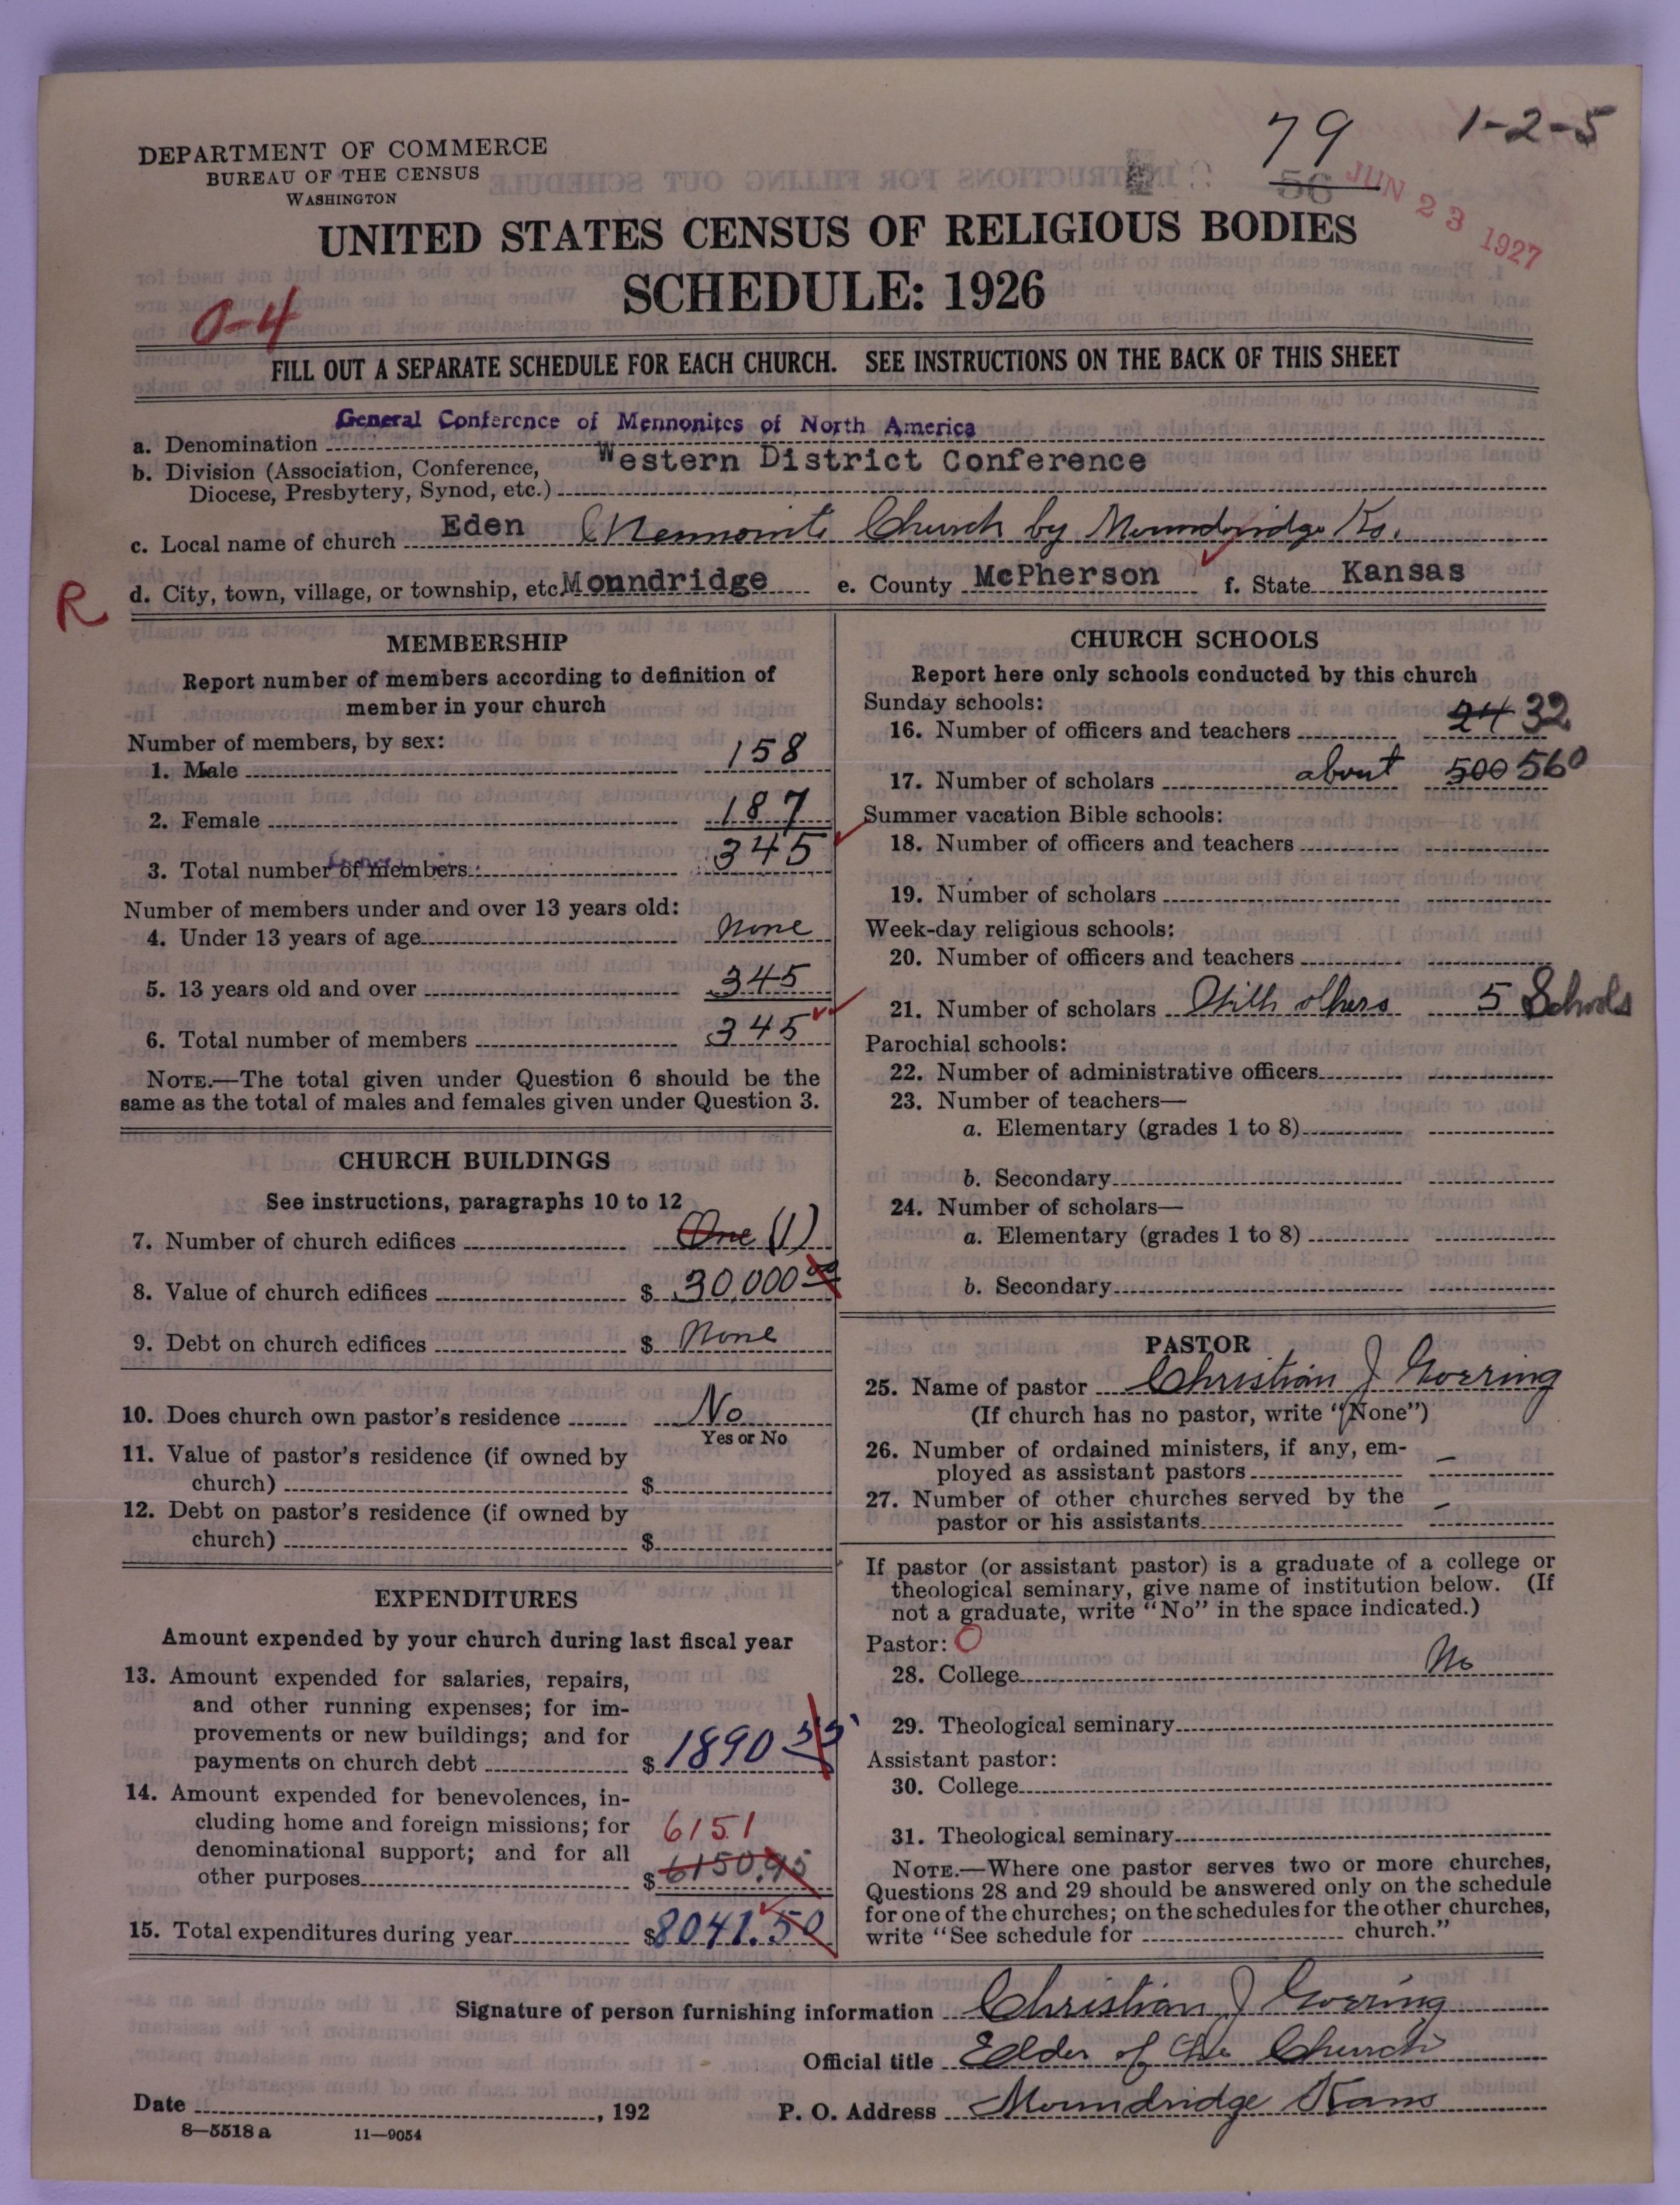 79 1-2-5
DEPARTMENT OF COMMERCE
BUREAU OF THE CENSUS
WASHINGTON
56
JUN 23 1927
UNITED STATES CENSUS OF RELIGIOUS BODIES
SCHEDULE: 1926
0-4
FILL OUT A SEPARATE SCHEDULE FOR EACH CHURCH. SEE INSTRUCTIONS ON THE BACK OF THIS SHEET
a. Denomination General Conference of Mennonites of North America
b. Division (Association, Conference, Western District Conference
Diocese, Presbytery, Synod, etc.)
c. Local name of church Eden (Mennonite Church by Moundridge Ks.
R d. City, town, village, or township, etc. Monndridge e. County McPherson f. State Kansas
MEMBERSHIP
Report number of members according to definition of
member in your church
Number of members, by sex:
1. Male 158
2. Female 187
3. Total number of members 345
Number of members under and over 13 years old:
4. Under 13 years of age None
5. 13 years old and over 345
6. Total number of members 345
NOTE.—The total given under Question 6 should be the
same as the total of males and females given under Question 3.
CHURCH BUILDINGS
See instructions, paragraphs 10 to 12
7. Number of church edifices One (1)
8. Value of church edifices $ 30,000 00
9. Debt on church edifices $ None
10. Does church own pastor's residence No
Yes or No
11. Value of pastor's residence (if owned by
church) $
12. Debt on pastor's residence (if owned by
church) $
EXPENDITURES
Amount expended by your church during last fiscal year
13. Amount expended for salaries, repairs,
and other running expenses; for im-
provements or new buildings; and for
payments on church debt $ 1890 55
14. Amount expended for benevolences, in-
cluding home and foreign missions; for 6151
denominational support; and for all
other purposes $ 6150.95
15. Total expenditures during year $ 8041.50
CHURCH SCHOOLS
Report here only schools conducted by this church
Sunday schools:
16. Number of officers and teachers 24 32
17. Number of scholars about 500 560
Summer vacation Bible schools:
18. Number of officers and teachers
19. Number of scholars
Week-day religious schools:
20. Number of officers and teachers
21. Number of scholars With others 5 Schools
Parochial schools:
22. Number of administrative officers
23. Number of teachers—
a. Elementary (grades 1 to 8)
b. Secondary
24. Number of scholars—
a. Elementary (grades 1 to 8)
b. Secondary
PASTOR
25. Name of pastor Christian J Goering
(If church has no pastor, write "None")
26. Number of ordained ministers, if any, em-
ployed as assistant pastors –
27. Number of other churches served by the
pastor or his assistants –
If pastor (or assistant pastor) is a graduate of a college or
theological seminary, give name of institution below. (If
not a graduate, write "No" in the space indicated.)
Pastor: O
28. College No
29. Theological seminary
Assistant pastor:
30. College
31. Theological seminary
NOTE.—Where one pastor serves two or more churches,
Questions 28 and 29 should be answered only on the schedule
for one of the churches; on the schedules for the other churches,
write "See schedule for church."
Signature of person furnishing information Christian J Goering
Official title Elder of the Church
Date , 192 P. O. Address Moundridge Kans
8—5518 a 11—9054